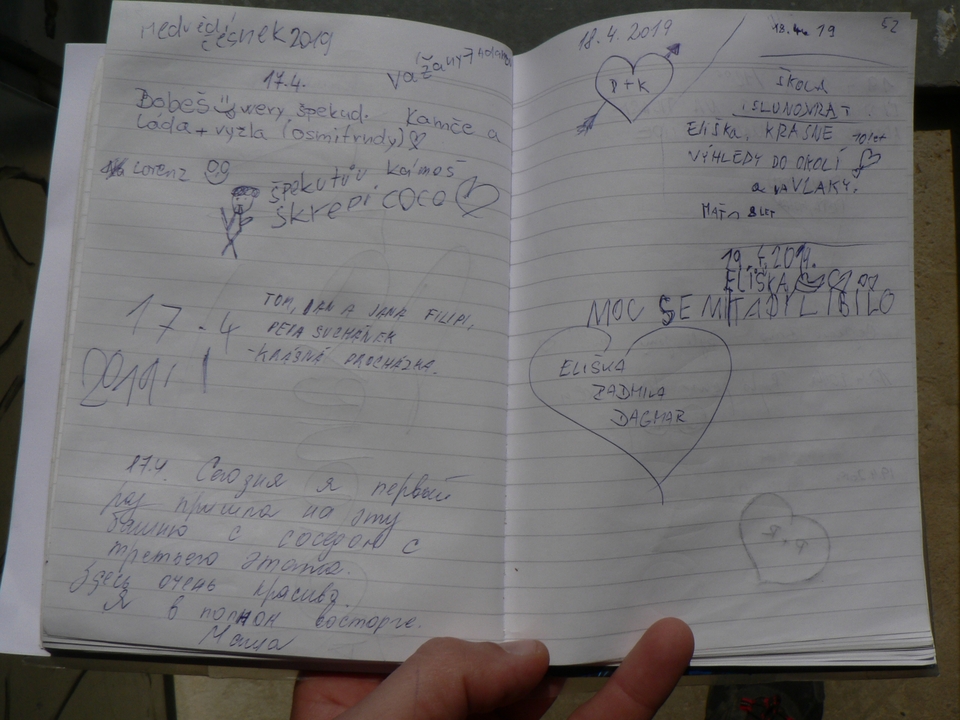 česnek 2019
17.4.
Babeš wery, špekud. Kamče a
Láda + vyzla (osmitrudy)
Lorenz
špekutův kámoš
škrepi coco
17.4
2019!
TOM, JAN A JANA FILIPI,
PEŤA SUCHÁNEK
-KRÁSNÁ PROCHÁZKA.
17.4. Сегодня я первый
раз пришла на эту
башню с соседом с
третьего этажа.
Здесь очень красиво.
Я в полном восторге.
Маша
18.4.2019
P+K
52
19
ŠKOLA
SLUNOVRAT
Eliška, KRÁSNÉ 10 let
VÝHLEDY DO OKOLÍ
a na VLAKY.
8 LET
19.4.2019.
ELIŠKA
MOC SE MI TADY LÍBILO
ELIŠKA
DAGMAR